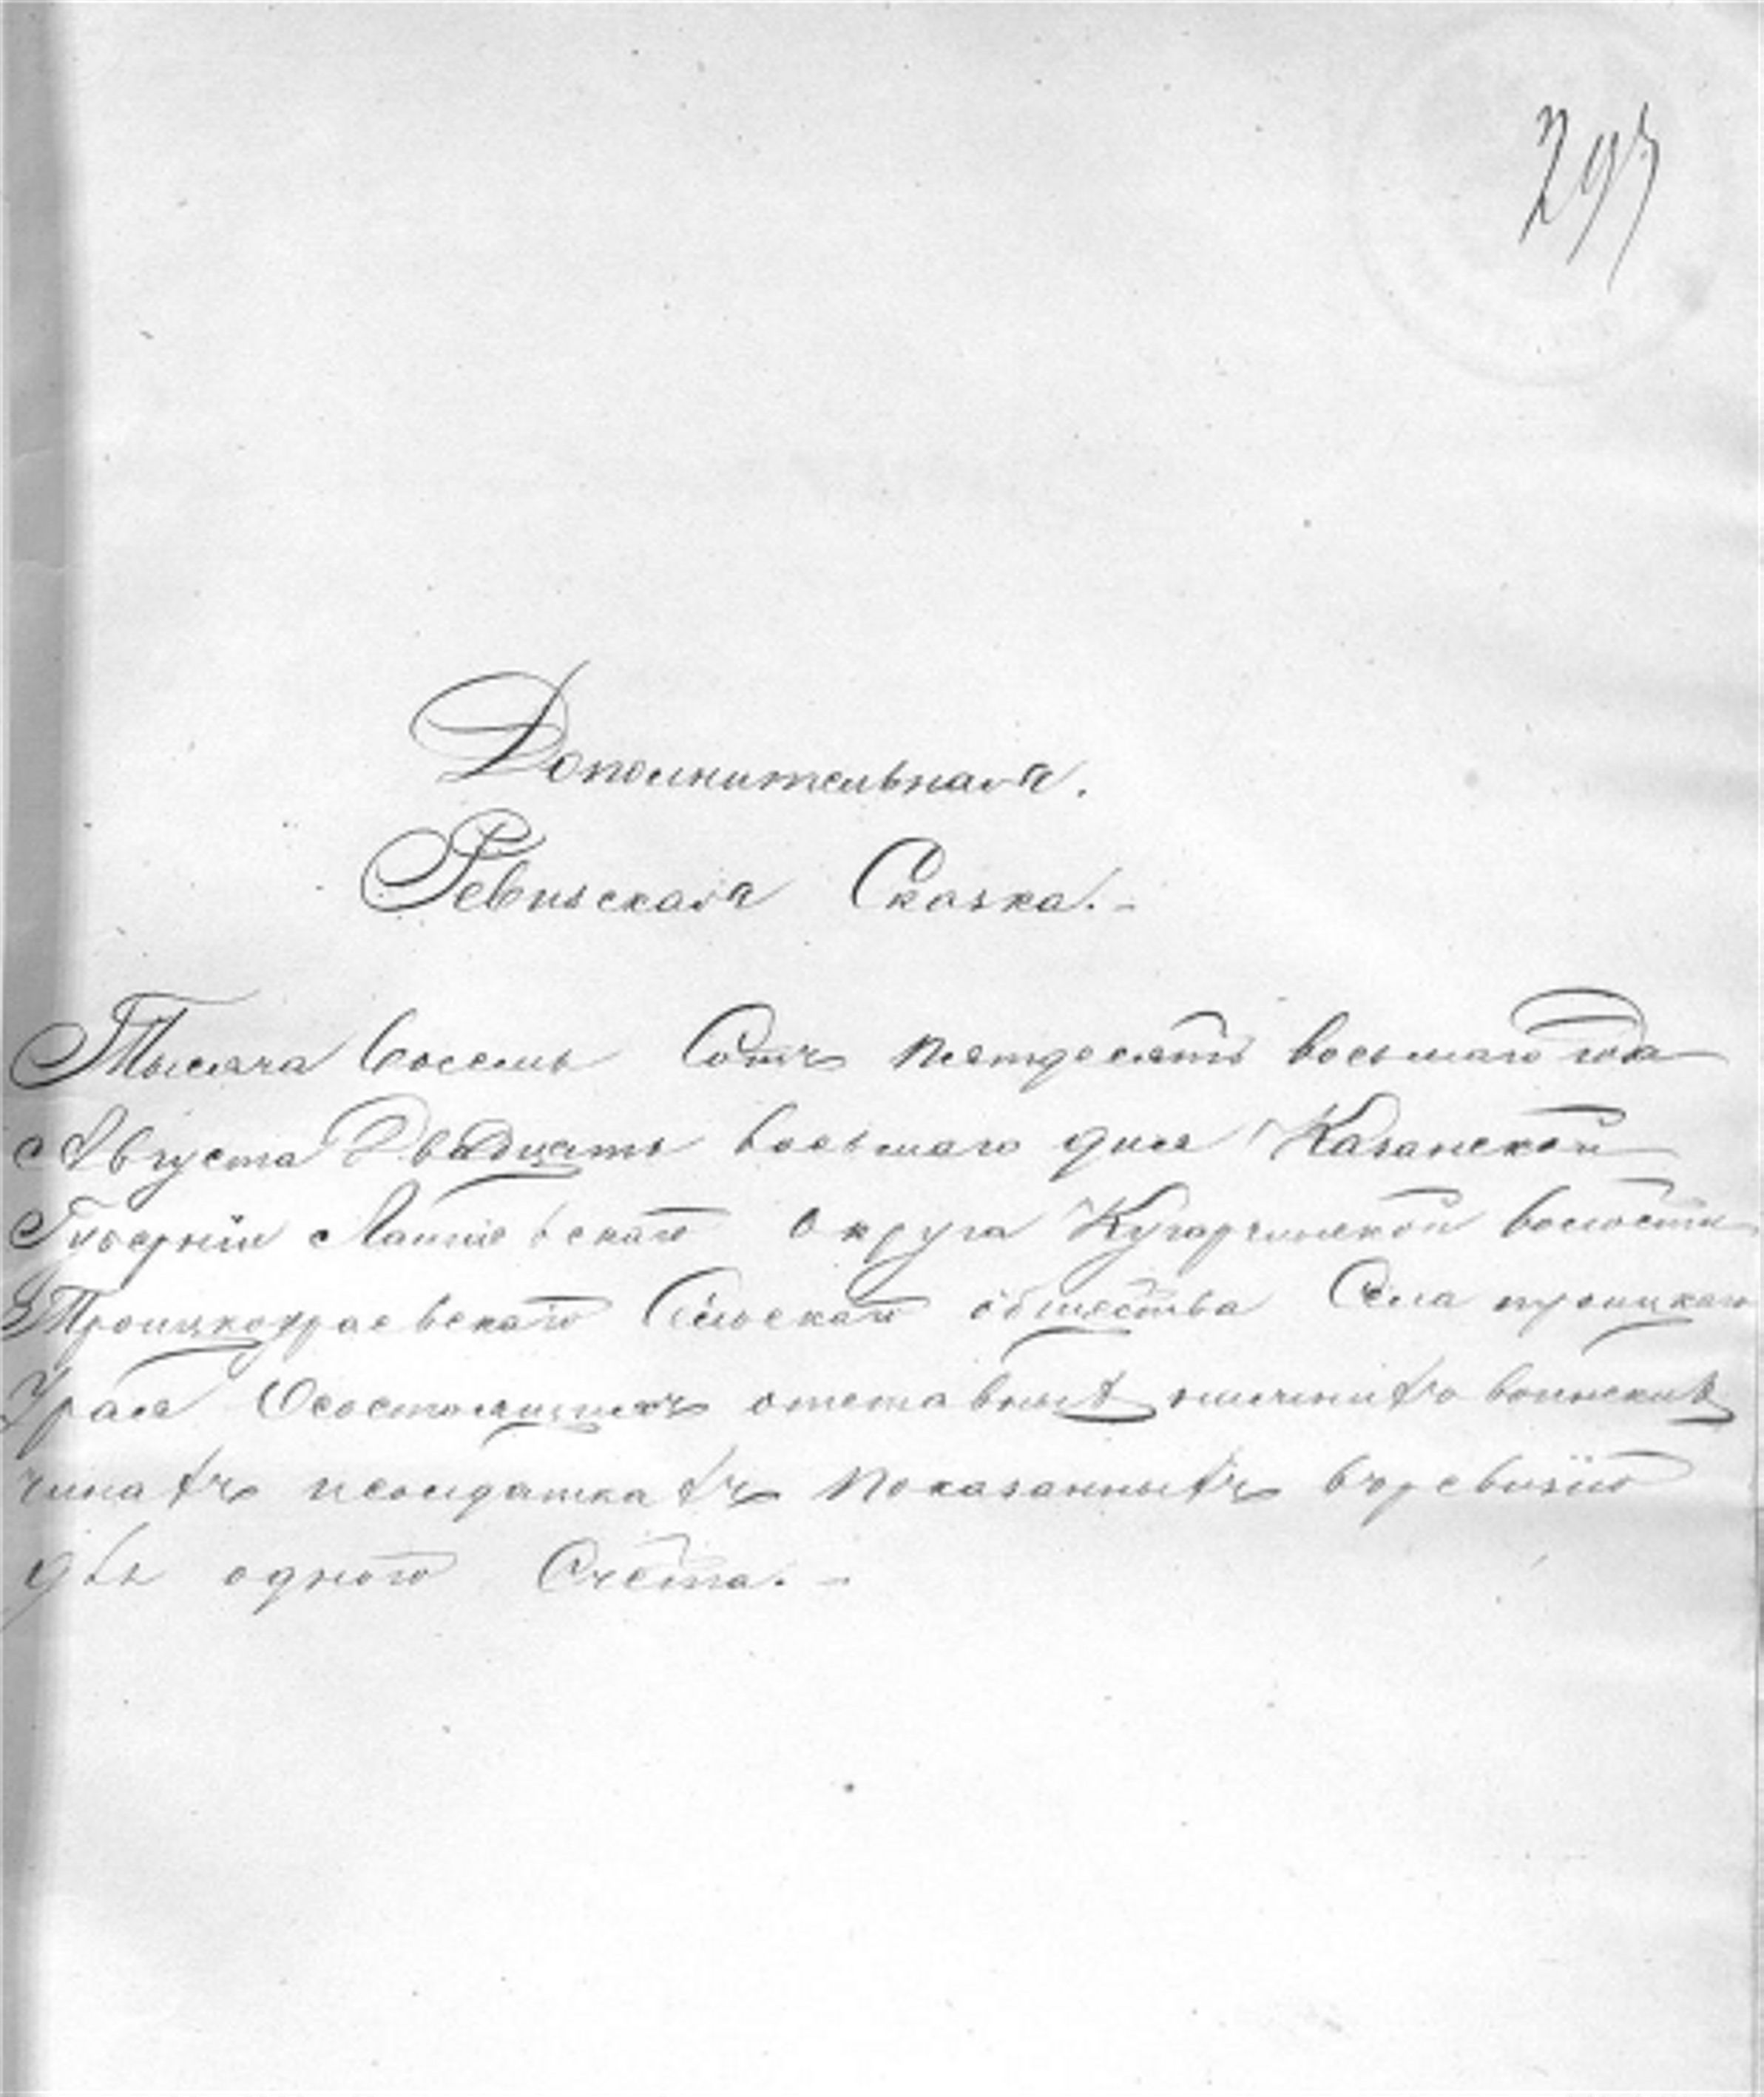 297
Дополнительная.
Ревизская Сказка.-
Тысяча восемь Сотъ пятдесятъ восьмаго года
Августа Двадцать восьмаго дня Казанской
Губерніи Лаишевскаго Округа Кугарчинской волости
Троицкоураевскаго Сельскаго общества Села троицкаго
Урая Осостоящихъ отставныхъ нижнихъ воинскихъ
чинахъ исолдаткахъ показанныхъ въревизію
для одного Счета.-